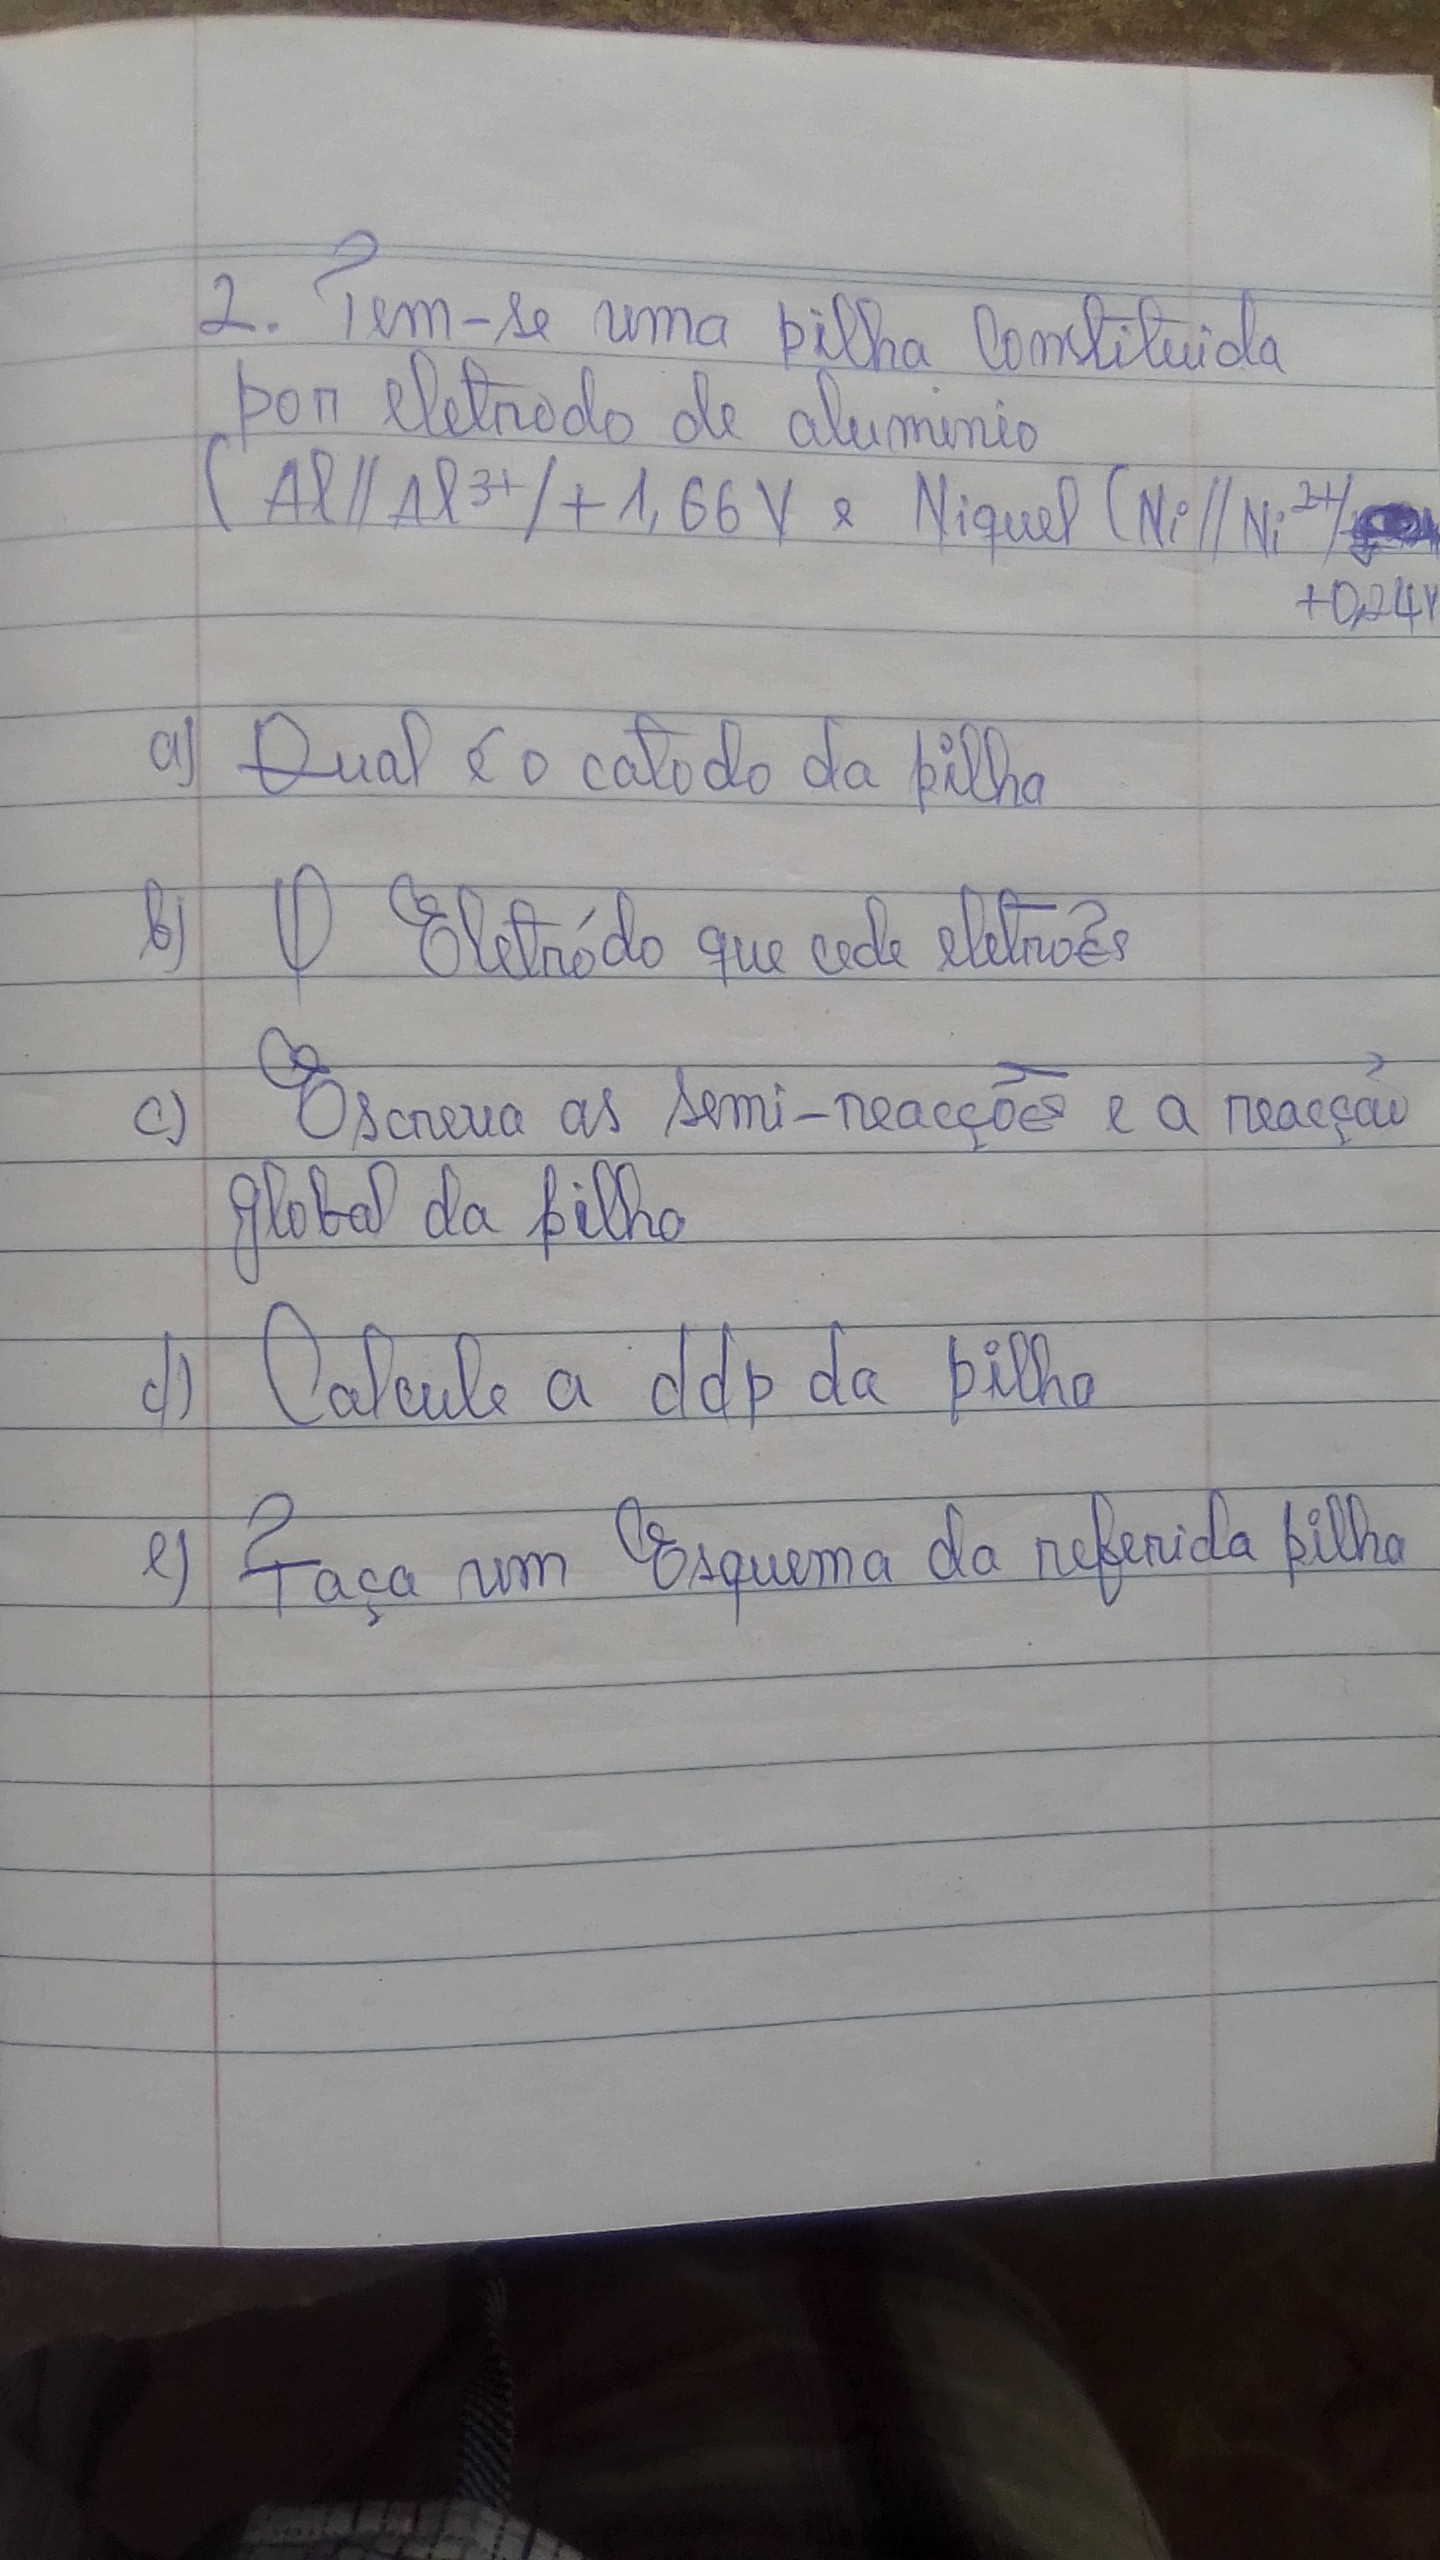 2. Tem-se uma pilha Constituida
por eletrodo de aluminio
(Al//Al³⁺/+1,66V e Niquel (Ni//Ni²⁺/
+0,24V
a) Qual é o catodo da pilha
b) O Eletródo que cede eletroẽs
c) Escreva as semi-reacções e a reacção
global da pilha
d) Calcule a ddp da pilha
e) Faça um Esquema da referida pilha